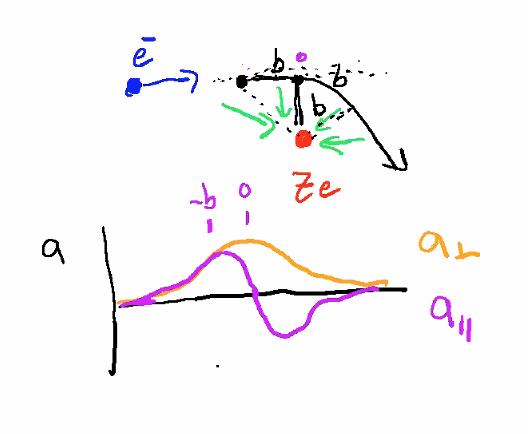 e⁻
o
b b
b
Ze
-b 0
a
a⊥
a∥